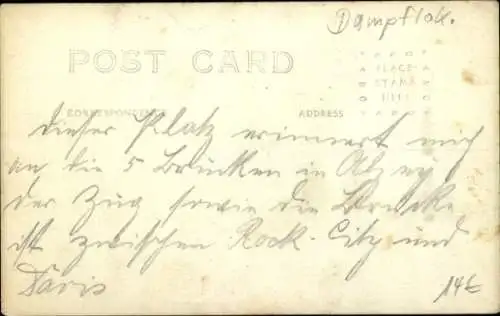 Dampflok.
POST CARD
PLACE
STAMP
HERE
CORRESPONDENCE
ADDRESS
Dieser Platz erinnert mich
an die 5 Brücken in Alzey
der Zug sowie die Brücke
ist zwischen Rock-City und
Davis
14€